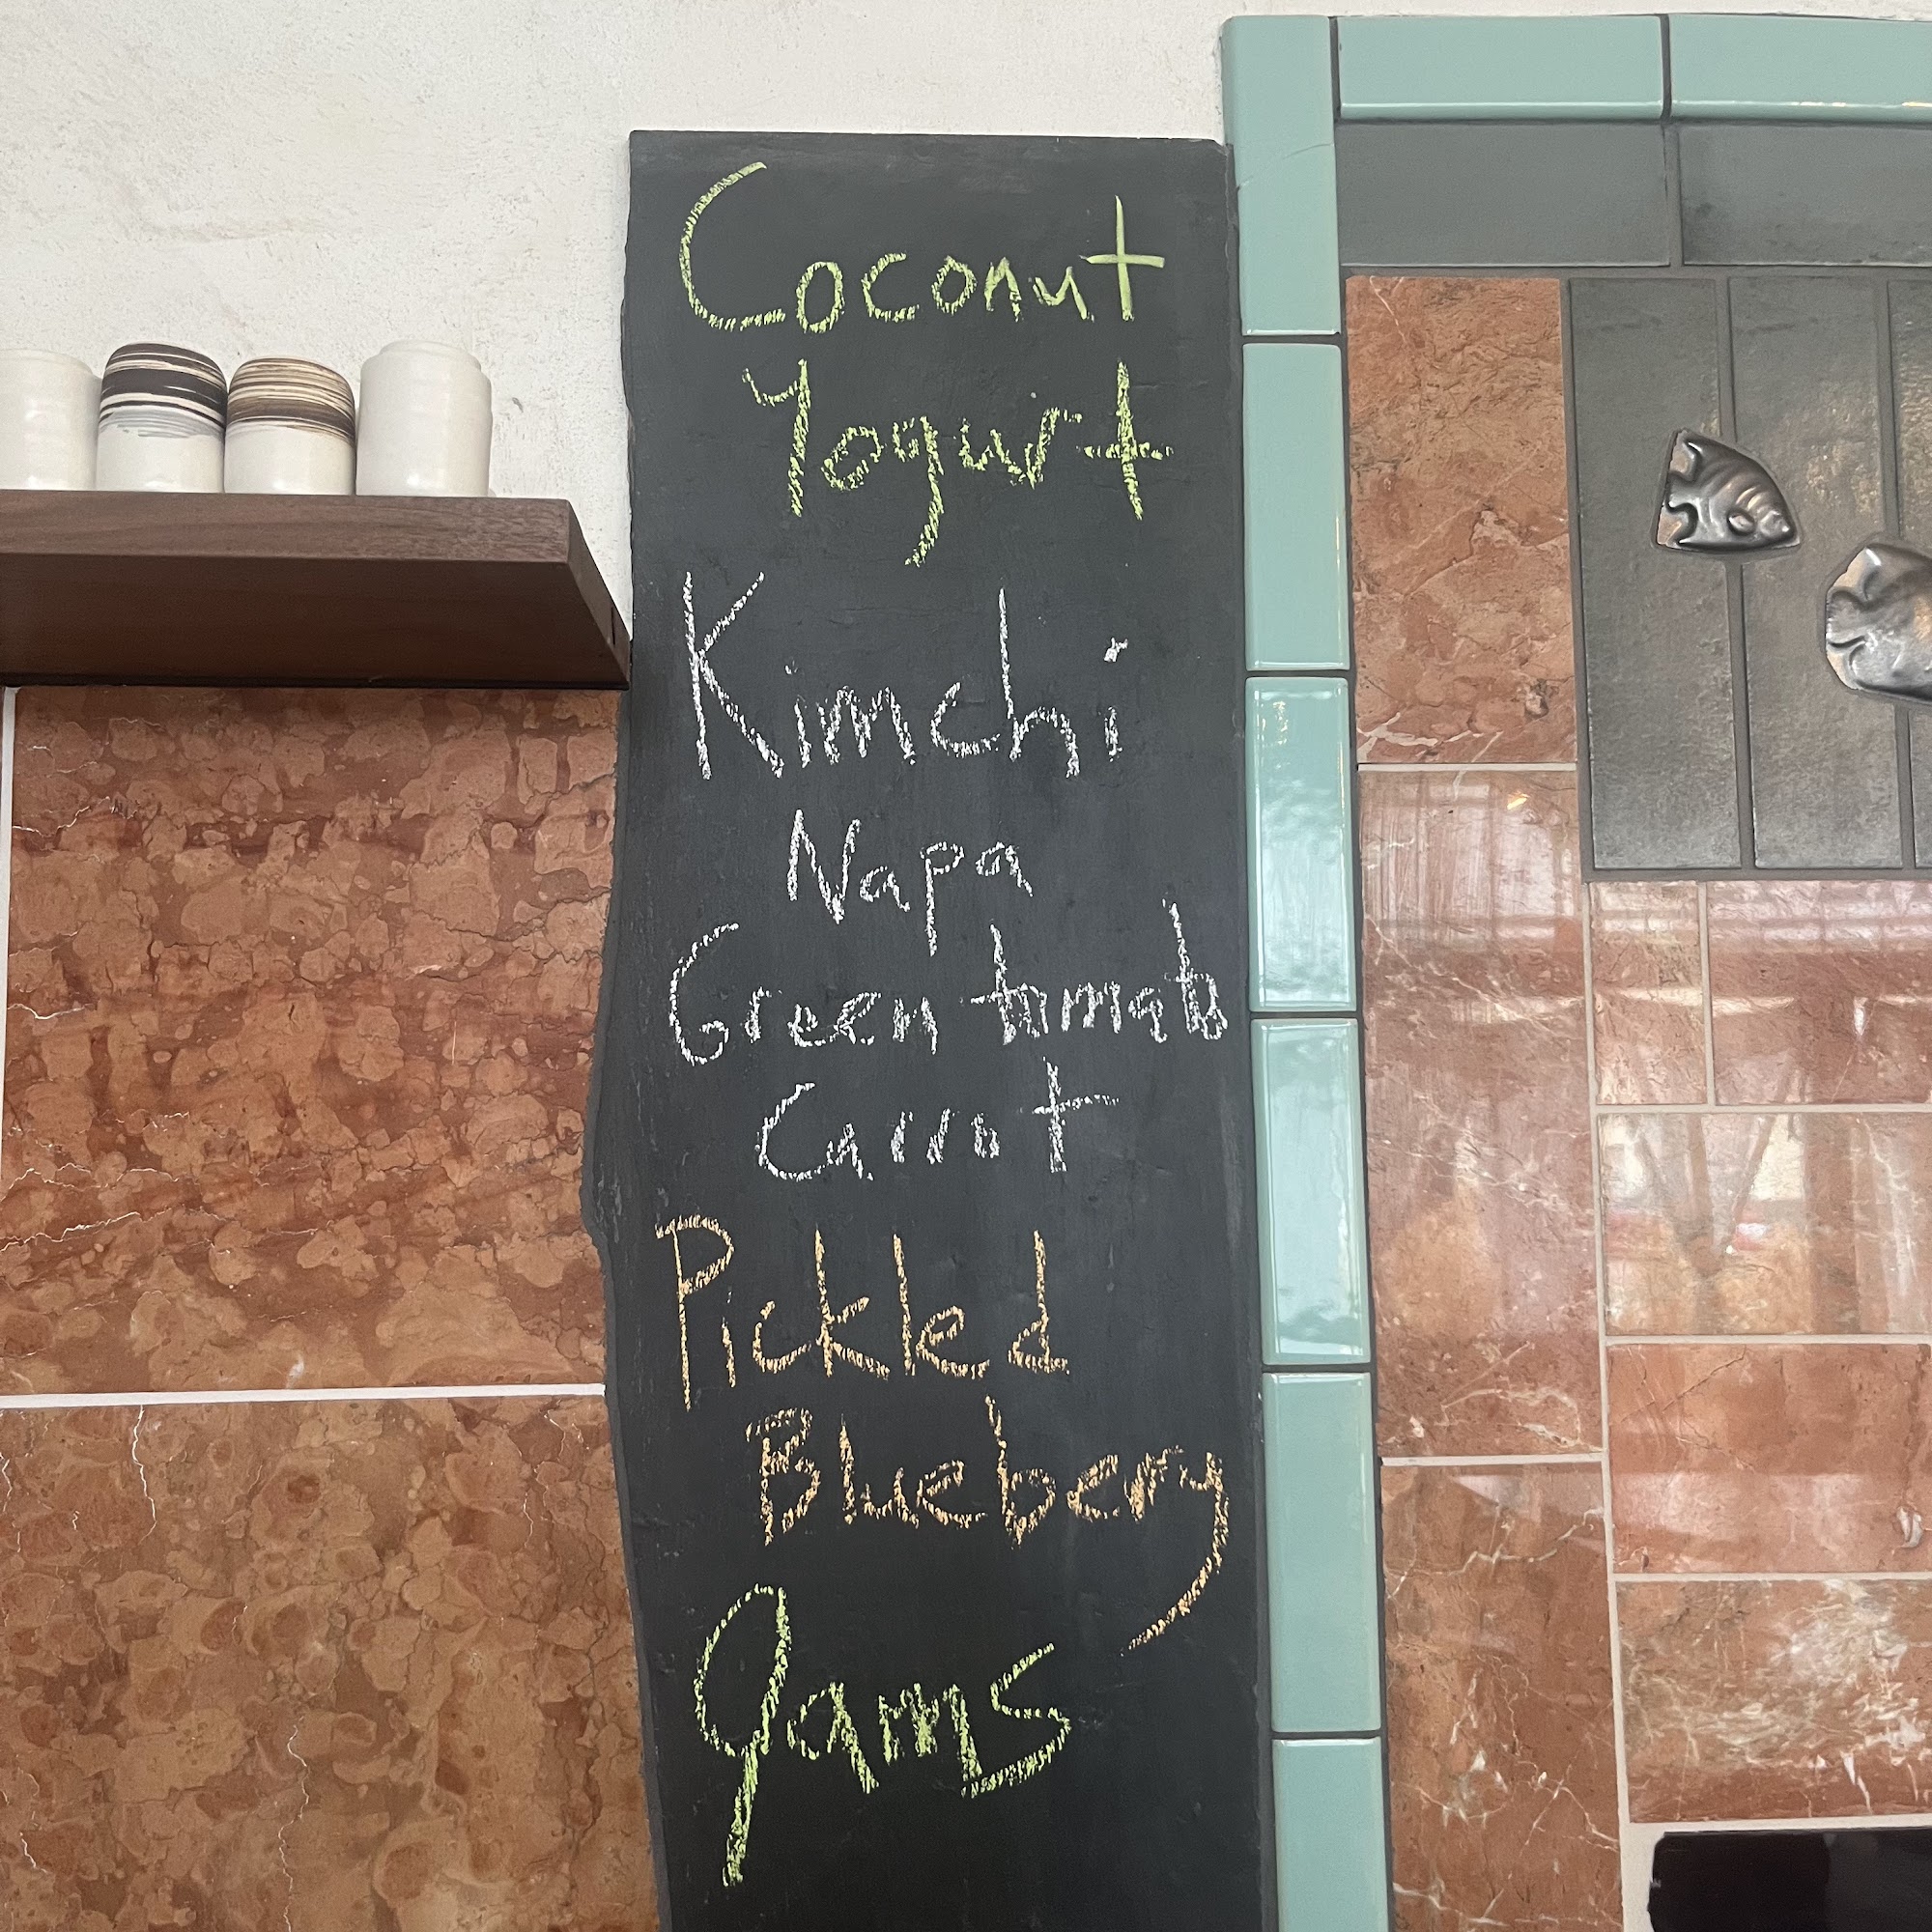 Coconut
Yogurt
Kimchi
Napa
Green tomato
Carrot
Pickled
Blueberry
Jams